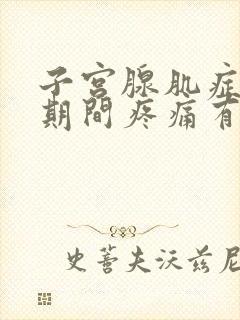 子宫腺肌症
期間疼痛有
史蒂夫沃兹尼